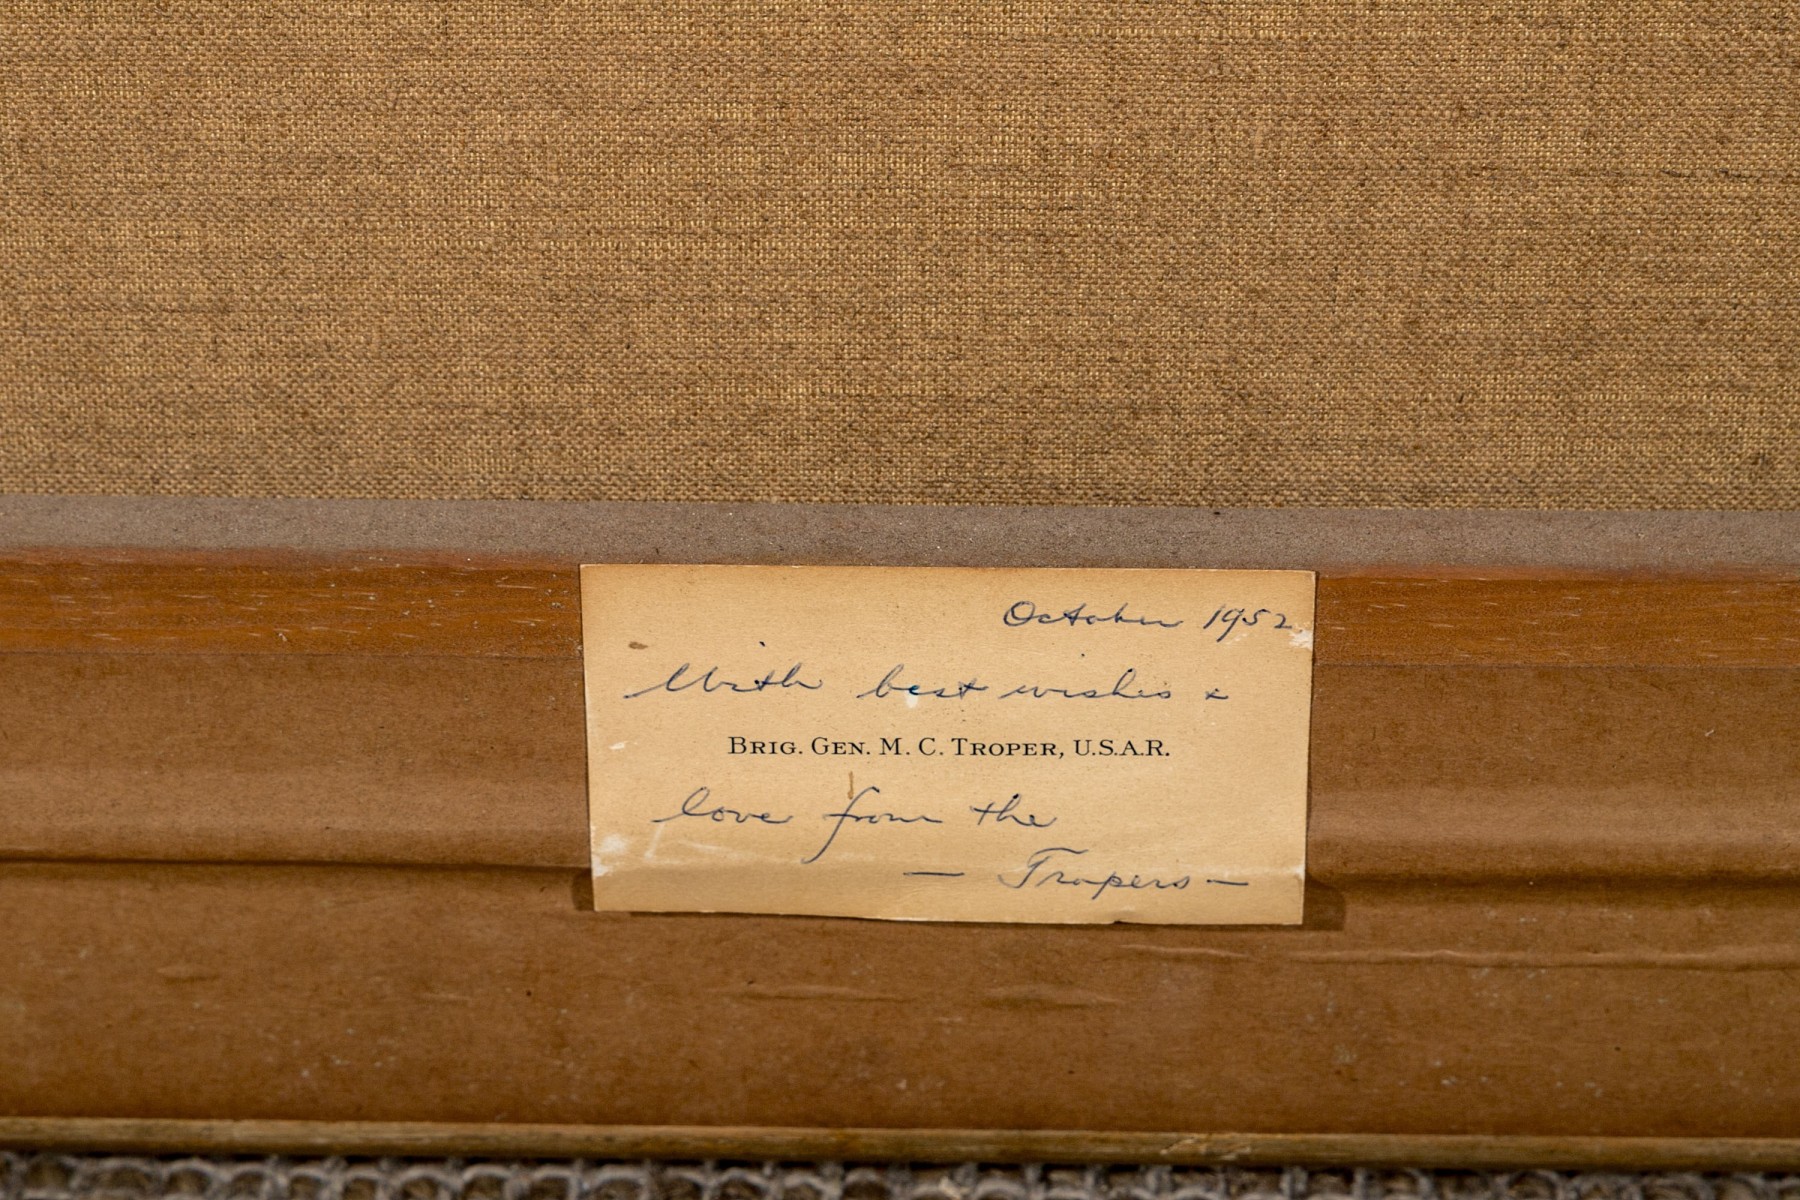 October 1952
With best wishes &
BRIG. GEN. M. C. TROPER, U.S.A.R.
love from the
— Tropers —